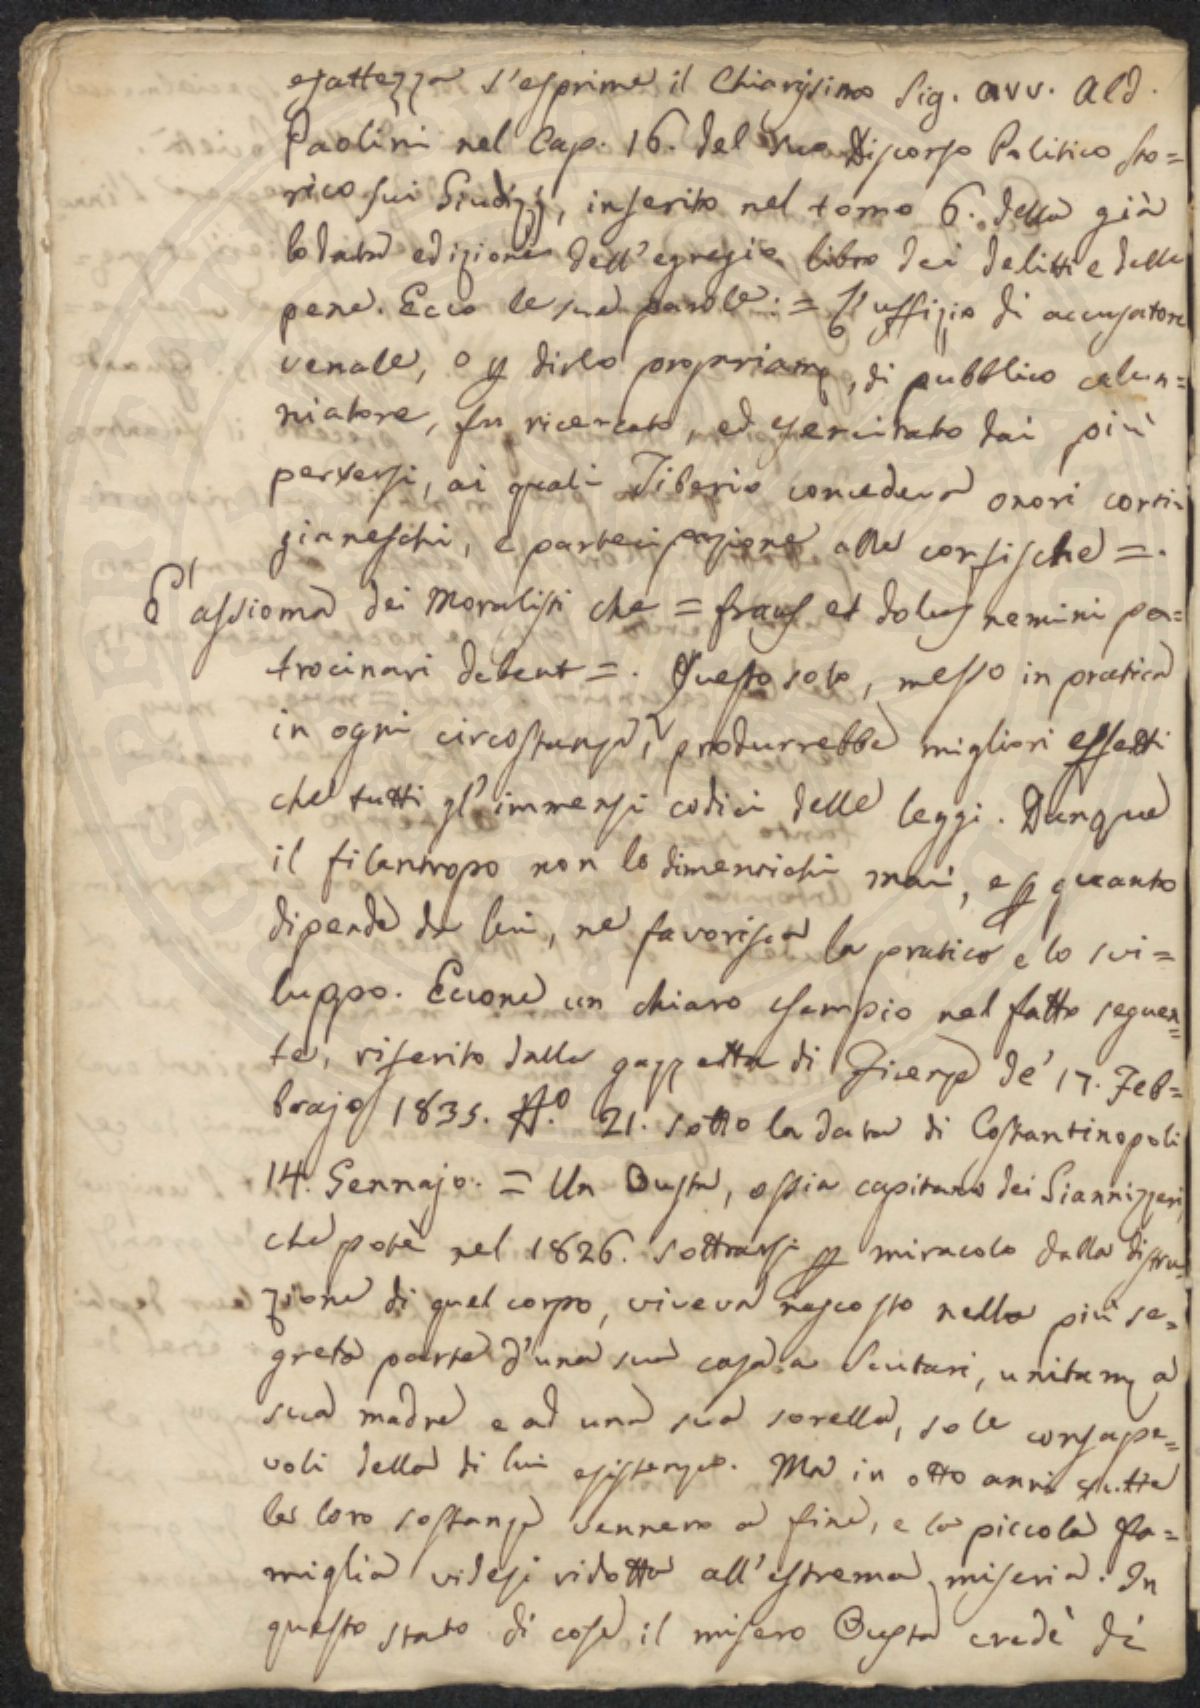 esattezza s'esprime il Chiarisimo Sig. avv. Ald.
Paolini nel Cap. 16. del suo Discorso Politico sto=
rico sui Giudizj, inserito nel tomo 6. della già
lodata edizione dell'egregio libro dei delitti e delle
pene. Ecco le sue parole: = L'uffizio di accusatore
venale, o p dirlo propriam, di pubblico calun=
niatore, fu ricercato, ed esercitato dai più
perversi, ai quali Tiberio concedeva onori corti
gianeschi, e partecipazione alle confische =.
L'assioma dei Moralisti che = fraus et dolus nemini pa=
trocinari debent =. Questo solo, messo in pratica
in ogni circostanza, produrrebbe migliori effetti
che tutti gl'immensi codici delle leggi. Dunque
il filantropo non lo dimentichi mai, e p quanto
dipende da lui, ne favorisca la pratica e lo svi=
luppo. Eccone un chiaro esempio nel fatto seguen=
te, riferito dalla gazzetta di Firenze de' 17. Feb=
brajo 1835. N.º 21. sotto la data di Costantinopoli
14. Gennajo. = Un Ousta, ossia capitano dei Giannizzeri,
che potè nel 1826. sottrarsi p miracolo dalla distru
zione di quel corpo, viveva nascosto nella più se=
greta parte d'una sua casa a Scutari, unitam a
sua madre e ad una sua sorella, sole consape=
voli della di lui esistenza. Ma in otto anni tutte
le loro sostanze vennero a fine, e la piccola fa=
miglia videsi ridotta all'estrema miseria. In
questo stato di cose il misero Ousta credè di